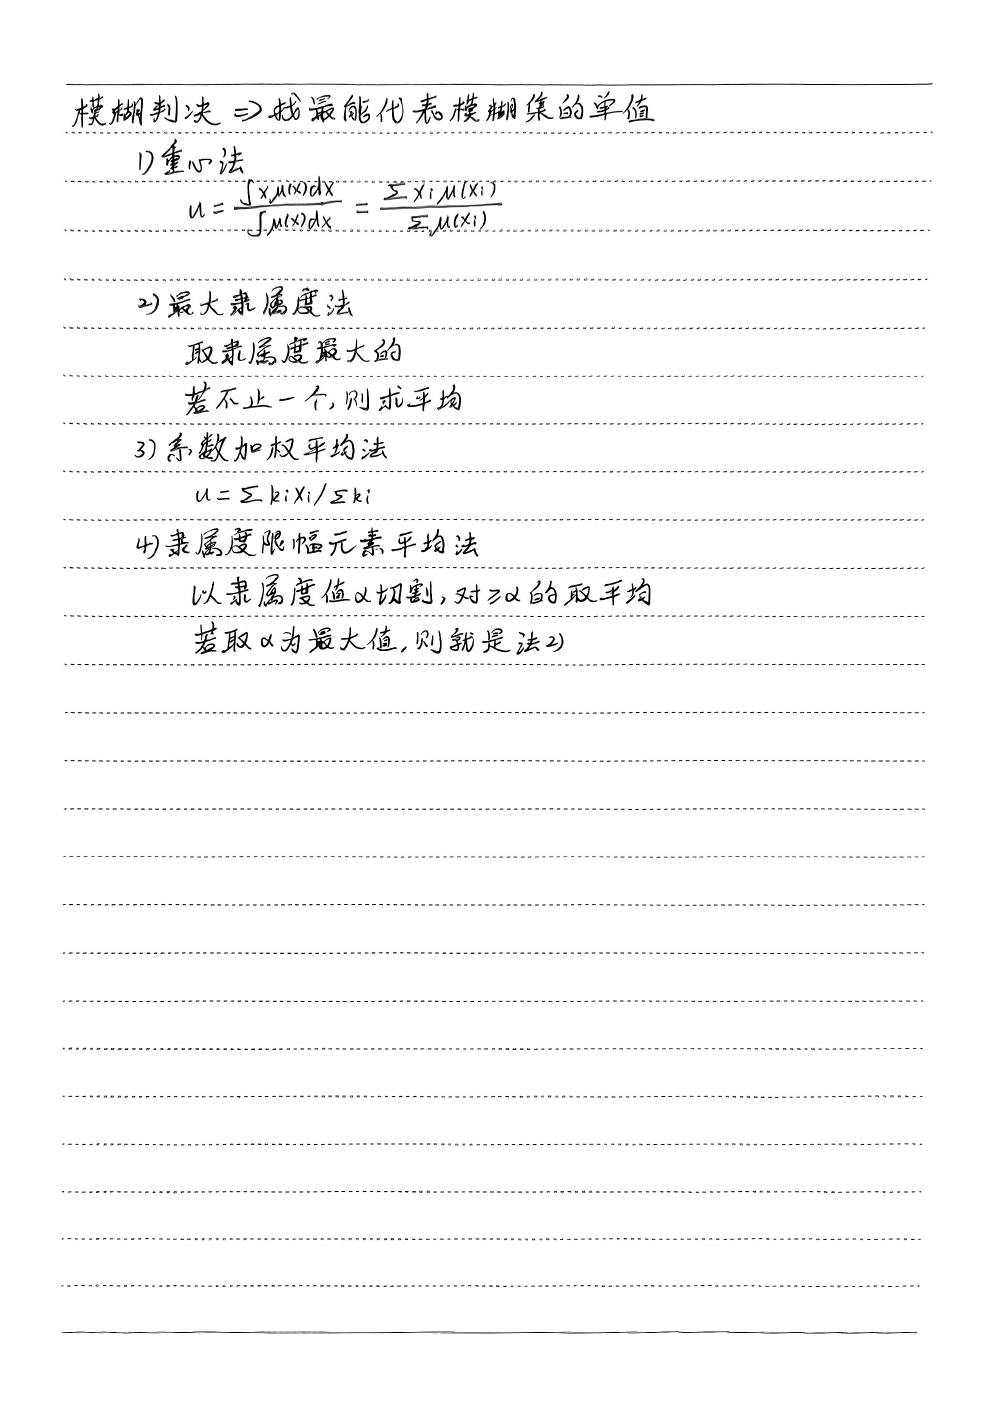 模糊判决 => 找最能代表模糊集的单值
1) 重心法
u = ∫xμ(x)dx / ∫μ(x)dx = Σxiμ(xi) / Σμ(xi)
2) 最大隶属度法
取隶属度最大的
若不止一个,则求平均
3) 系数加权平均法
u = Σkixi/Σki
4) 隶属度限幅元素平均法
以隶属度值α切割,对≥α的取平均
若取α为最大值,则就是法2)